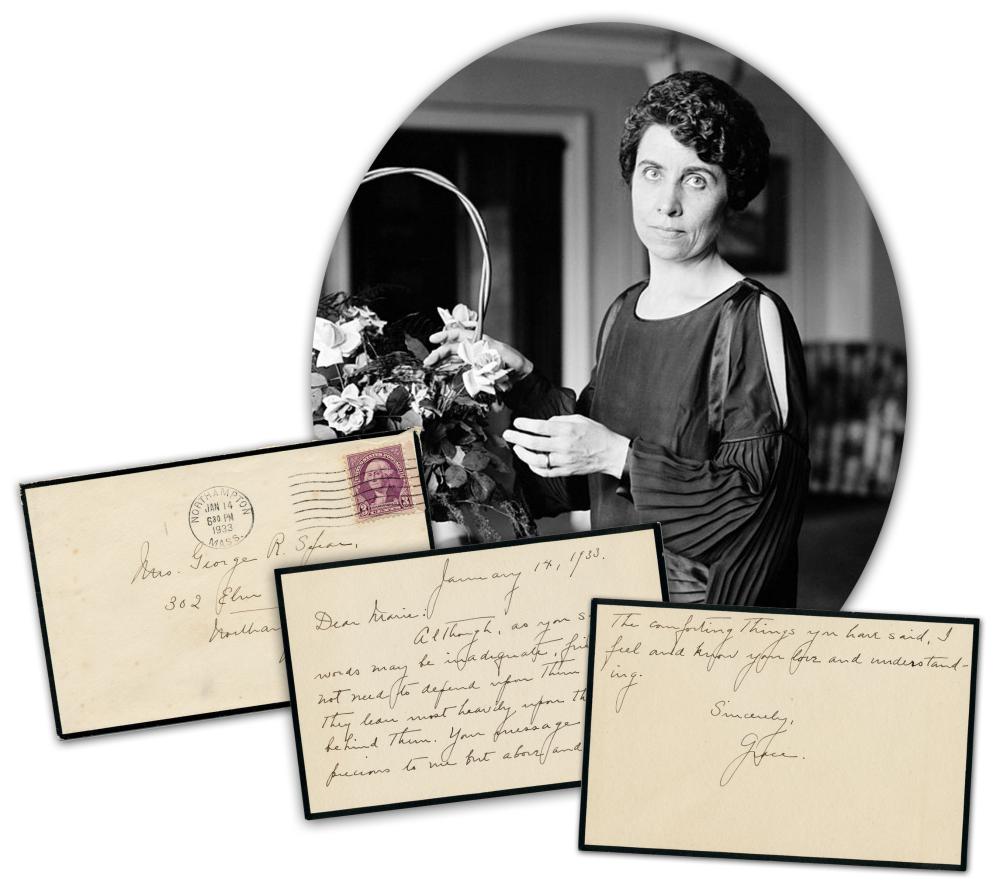 NORTHAMPTON
JAN 14
6 30 PM
1933
MASS.
UNITED STATES POSTAGE
3 3
Mrs. George R. Spear,
302 Elm
Northam
January 14, 1933.
Dear Marie:
Although, as you s
words may be inadequate, frie
not need to depend upon them
they lean most heavily upon th
behind them. Your message
precious to me but above and
the comforting things you have said, I
feel and know your love and understand-
ing.
Sincerely,
Grace.